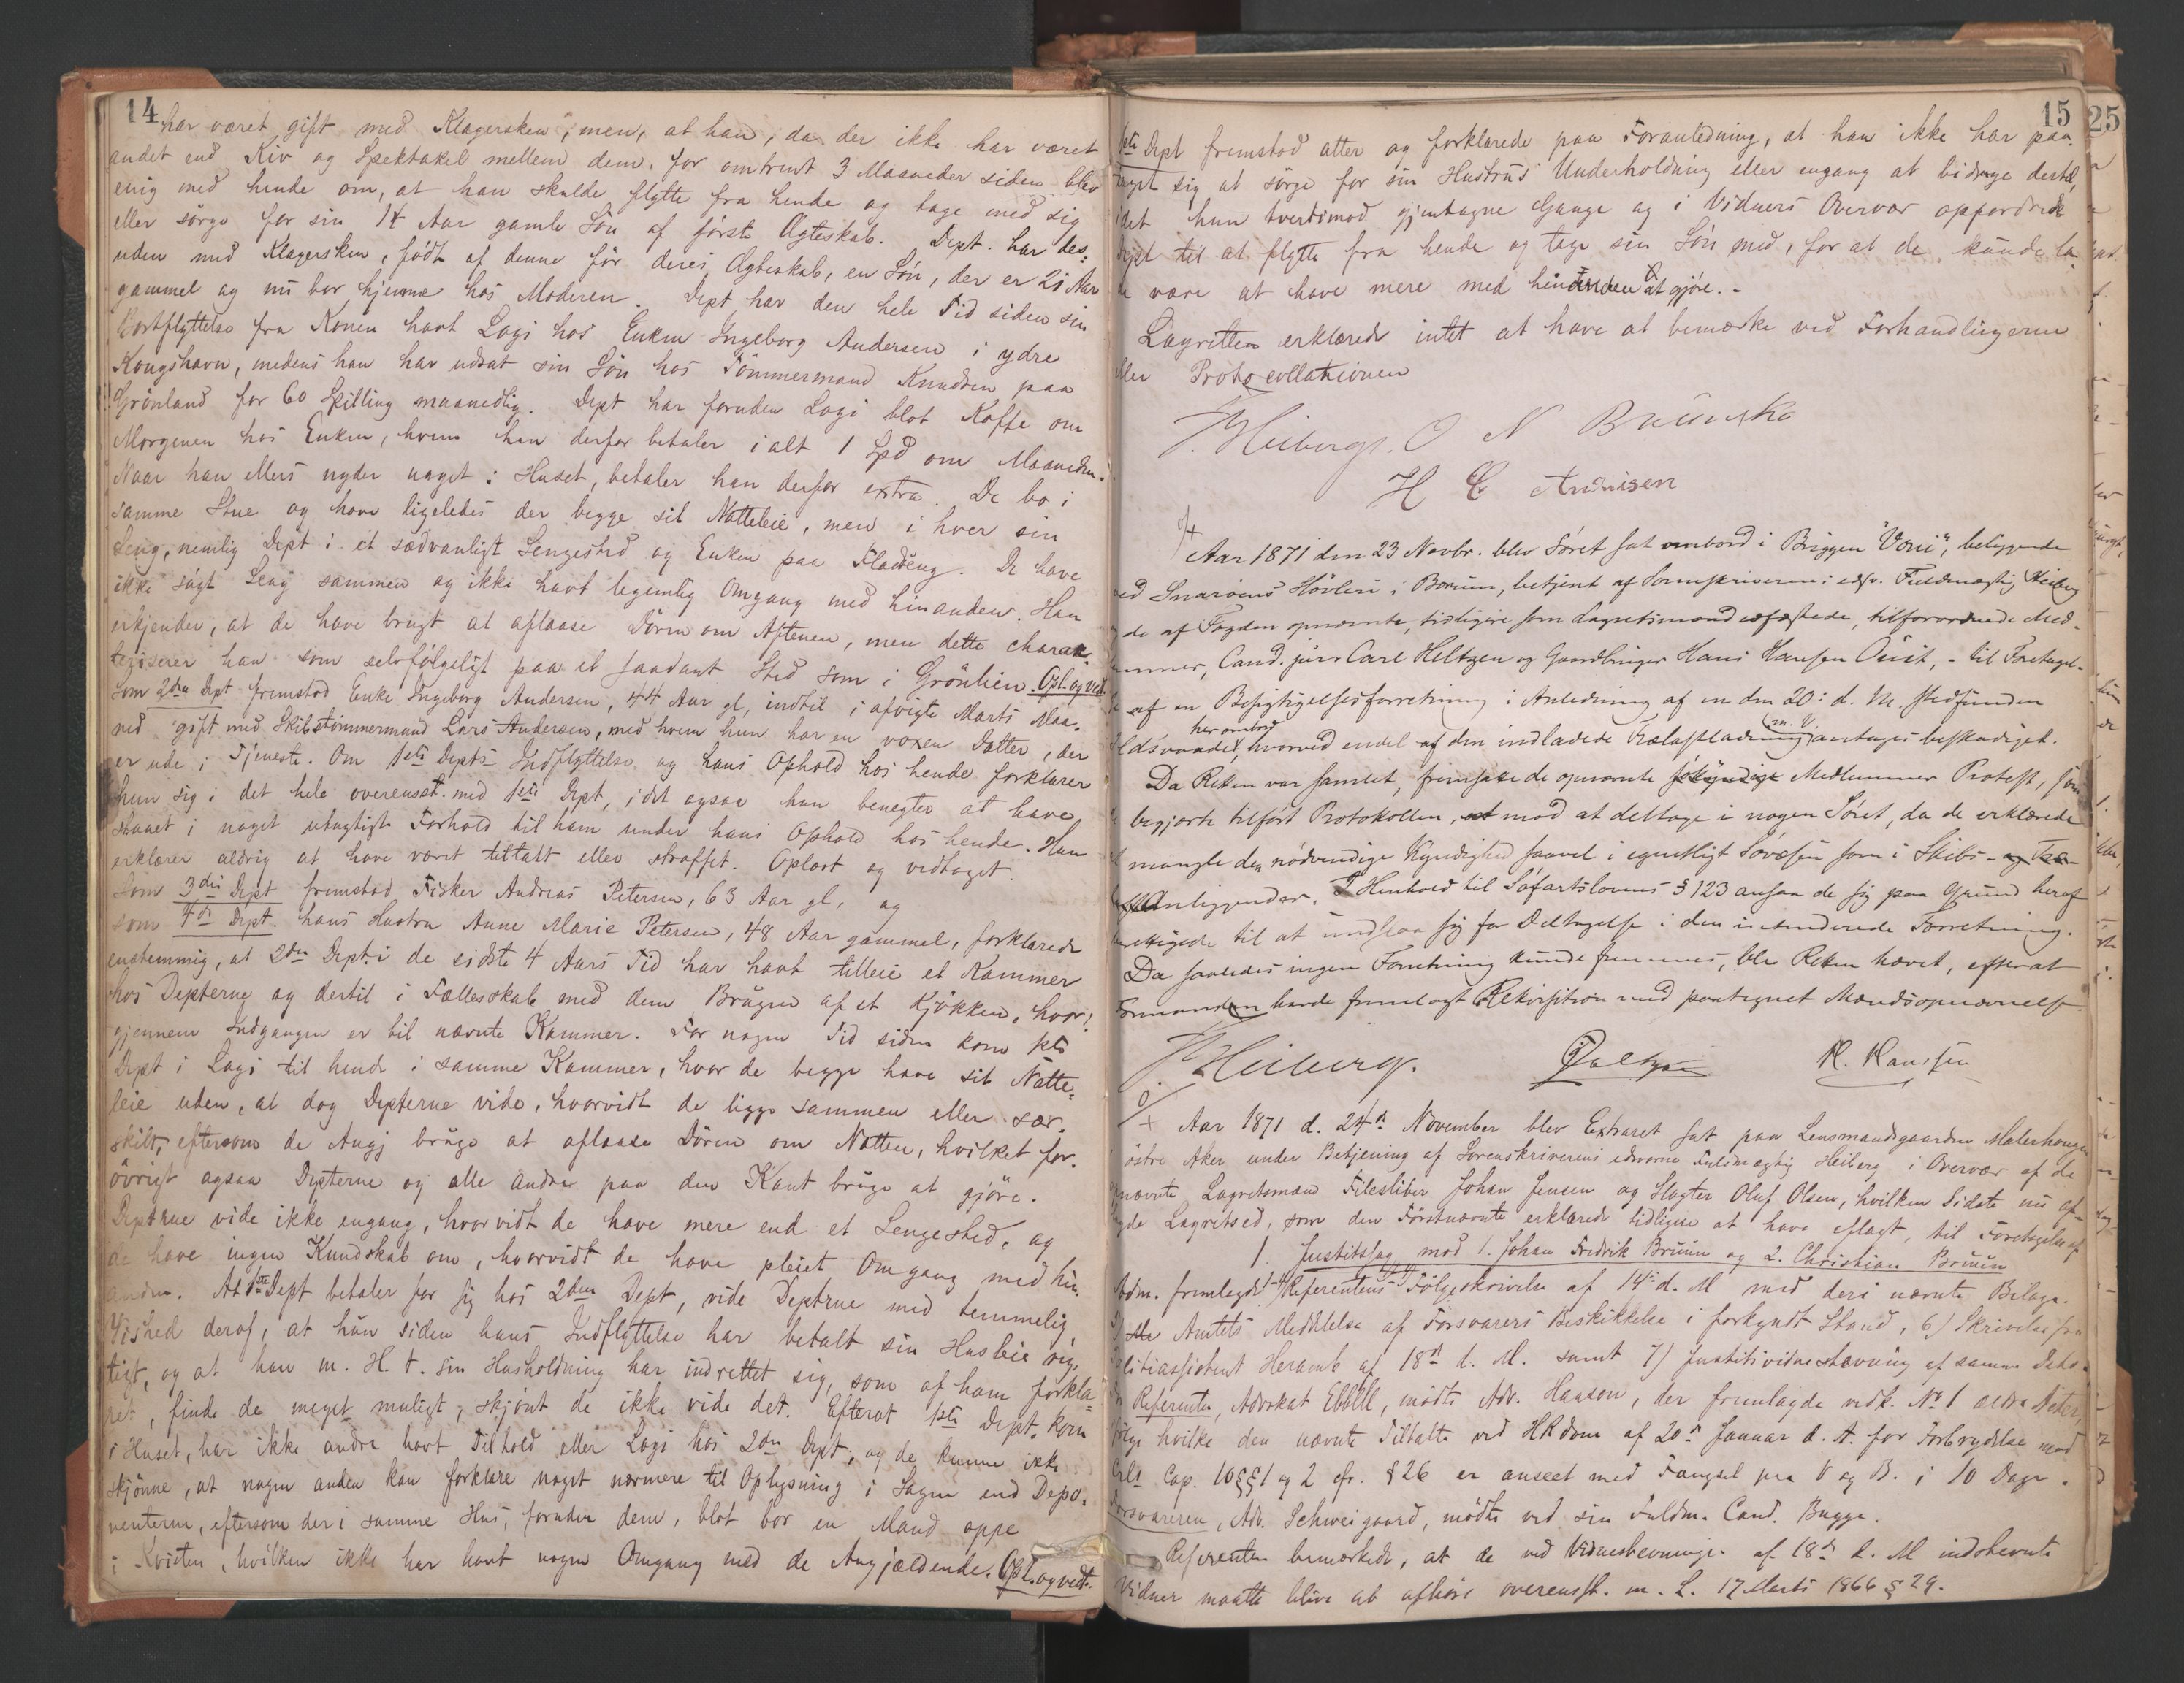 14
har været gift med Klagersken, men, at han, da der ikke har været
andet end Kiv og Spektakel mellem dem, for omtrent 3 Maaneder siden blev
enig med hende om, at han skulde flytte fra hende og tage med sig
eller sörge for sin 14 Aar gamle Sön af förste Ægteskab. Dept. har des-
uden med Klagersken, födt af denne för deres Ægteskab, en Sön, der er 21 Aar
gammel og nu bor hjemme hos Moderen. Dept har den hele Tid siden sin
Bortflyttelse fra Konen havt Logi hos Enken Ingeborg Andersen i ydre
Kongshavn, medens han har udsat sin Sön hos Tömmermand Knudsen paa
Grönland for 60 Skilling maanedlig. Dept har foruden Logi blot Kaffe om
Morgenen hos Enken, hvem han derfor betaler i alt 1 Spd om Maaneden.
Naar han ellers nyder noget i Huset, betaler han derfor extra. De bo i
samme Stue og have ligeledes der begge sit Natteleie, men i hver sin
Seng, nemlig Dept i et sædvanligt Sengested og Enken paa Fladseng. De have
ikke sögt Seng sammen og ikke havt legemlig Omgang med hinanden. Han
erkjender, at de have brugt at aflaase Dören om Aftenen, men dette charak-
teriserer han som selvfölgeligt paa et saadant Sted som i Grönlien. Opl. og ved.
Som 2den Dept fremstod Enke Ingeborg Andersen, 44 Aar gl, indtil i afvigte Marts Maa-
ned gift med Skibstömmermand Lars Andersen, med hvem hun har en voxen Datter, der
er ude i Tjeneste. Om 1ste Depts Indflyttelse og hans Ophold hos hende forklarer
hun sig i det hele overensst. med 1ste Dept, idet ogsaa hun benegter at have
staaet i noget utugtigt Forhold til ham under hans Ophold hos hende. Hun
erklærer aldrig at have været tiltalt eller straffet. Oplæst og vedtaget.
Som 3die Dept fremstod Fisker Andreas Petersen, 63 Aar gl, og
som 4de Dept. hans Hustru Anne Marie Petersen, 48 Aar gammel, forklarede
enstemmig, at 2den Dept. i de sidste 4 Aars Tid har havt tilleie et Kammer
hos Depterne og dertil i Fællesskab med dem Brugen af et Kjökken, hvor-
gjennem Indgangen er til nævnte Kammer. For nogen Tid siden kom 1ste
Dept i Logi til hende i samme Kammer, hvor de begge have sit Natte-
leie uden, at dog Depterne vide, hvorvidt de ligge sammen eller sær-
skilt, eftersom de Angj bruge at aflaase Dören om Natten, hvilket for-
övrigt ogsaa Depterne og alle andre paa den Kant bruge at gjöre.
Depterne vide ikke engang, hvorvidt de have mere end et Sengested, og
de have ingen Kundskab om, hvorvidt de have pleiet Omgang med hin-
anden. At 1ste Dept betaler for sig hos 2den Dept, vide Depterne med temmelig
Vished deraf, at hun siden hans Indflyttelse har betalt sin Husleie rig-
tigt, og at han m. H. t. sin Husholdning har indrettet sig, som af ham forkla-
ret, finde de meget muligt, skjönt de ikke vide det. Efterat 1ste Dept. kom
i Huset, har ikke andre havt Tilhold eller Logi hos 2den Dept; og de kunne ikke
skjönne, at nogen anden kan forklare noget nærmere til Oplysning i Sagen end Depo-
nenterne, eftersom der i samme Hus, foruden dem, blot bor en Mand oppe
i Kvisten, hvilken ikke har havt nogen Omgang med de Angjældende. Opl. og vedt.
15
1ste Dept fremstod atter og forklarede paa Foranledning, at han ikke har paa-
taget sig at sörge for sin Hustrus Underholdning eller engang at bidrage dertil,
idet hun tvertimod gjentagne Gange og i Vidners Overvær opfordrede
Dept til at flytte fra hende og tage sin Sön med, for at de kunde la-
de være at have mere med hinanden at gjöre.-
Lagretten erklærede intet at have at bemærke ved Forhandlingerne
eller Protocollationen
J. Heiberg. O N Braanske
H C Andrisen
Aar 1871 den 23 Novbr. blev Söret sat ombord i Briggen "Vonu", beliggende
ved Snaröens Hövleri i Bærum, betjent af Sorenskriverens edsv. Fuldmægtig Heiberg
og de af Fogden opnævnte, tidligere som Lagretsmænd edfæstede, tilforordnede Med-
lemmer, Cand. jur. Carl Heltzen og Gaardbruger Hans Hansen Öust, - til Foretagel-
se af en Besigtigelsesforretning i Anledning af en den 20: d. M. stedfunden
Ildsvaade, her ombord hvorved endel af den indladede Trælastladning m. V. antages beskadiget.
Da Retten var samlet, fremsatte de opnævnte sökyndige Medlemmer Protest, som
begjært tilfört Protokollen, mod at deltage i nogen Söret, da de erklærede
mangle den nödvendige Kyndighed saavel i egentligt Sövæsen som i Skibs-
Anliggender. I Henhold til Söfartslovens § 123 ansaa de sig paa Grund heraf
berettigede til at undslaa sig for Deltagelse i den intenderede Forretning.
Da saaledes ingen Forretning kunde fremmes, blev Retten hævet, efterat
Formanden havde fremlagt Rekvisition med paategnet Mændsopnævnelse.
J. Heiberg. H. Hanssen
Aar 1871 d. 24de November blev Extraret sat paa Lensmandsgaarden Malerhaugen
i östre Aker under Betjening af Sorenskriverens edsvorne Fuldmægtig Heiberg i Overvær af de
opnævnte Lagretsmænd Filesliber Johan Jensen og Slagter Oluf Olsen, hvilken Sidste nu af-
lagde Lagretsed, som den Förstnævnte erklærede tidligere at have aflagt, til Foretagelse af
1. Justitssag mod 1. Johan Fredrik Bruun og 2. Christian Bruun
Adm. fremlagde Referentens Fölgeskrivelse af 14de d. M med deri nævnte Bilage.
5) Amtets Meddelelse af Forsvarers Beskikkelse i forkyndt Stand, 6) Skrivelse fra
Politiassistent Heramb af 18de d. M. samt 7) Justitsvidnestævning af samme Dato.
For Referenten, Advokat Ebbell, mödte Adv. Hansen, der fremlagde vedk. No 1 ældre Akter,
ifölge hvilke den nævnte Tiltalte ved HRdom af 20de Januar d. A. for Forbrydelse mod
Crls Cap. 18 §§ 1 og 2 cfr. § 26 er anseet med Fængsel paa V og B. i 10 Dage.
Forsvareren, Adv. Schweigaard, mödte ved sin Fuldm. Cand. Bugge.
Referenten bemærkede, at de ved Vidnestevningen af 18de d. M indstevnte
Vidner maatte blive at afhöre overensst. m. L. 17 Marts 1866 § 29.
25